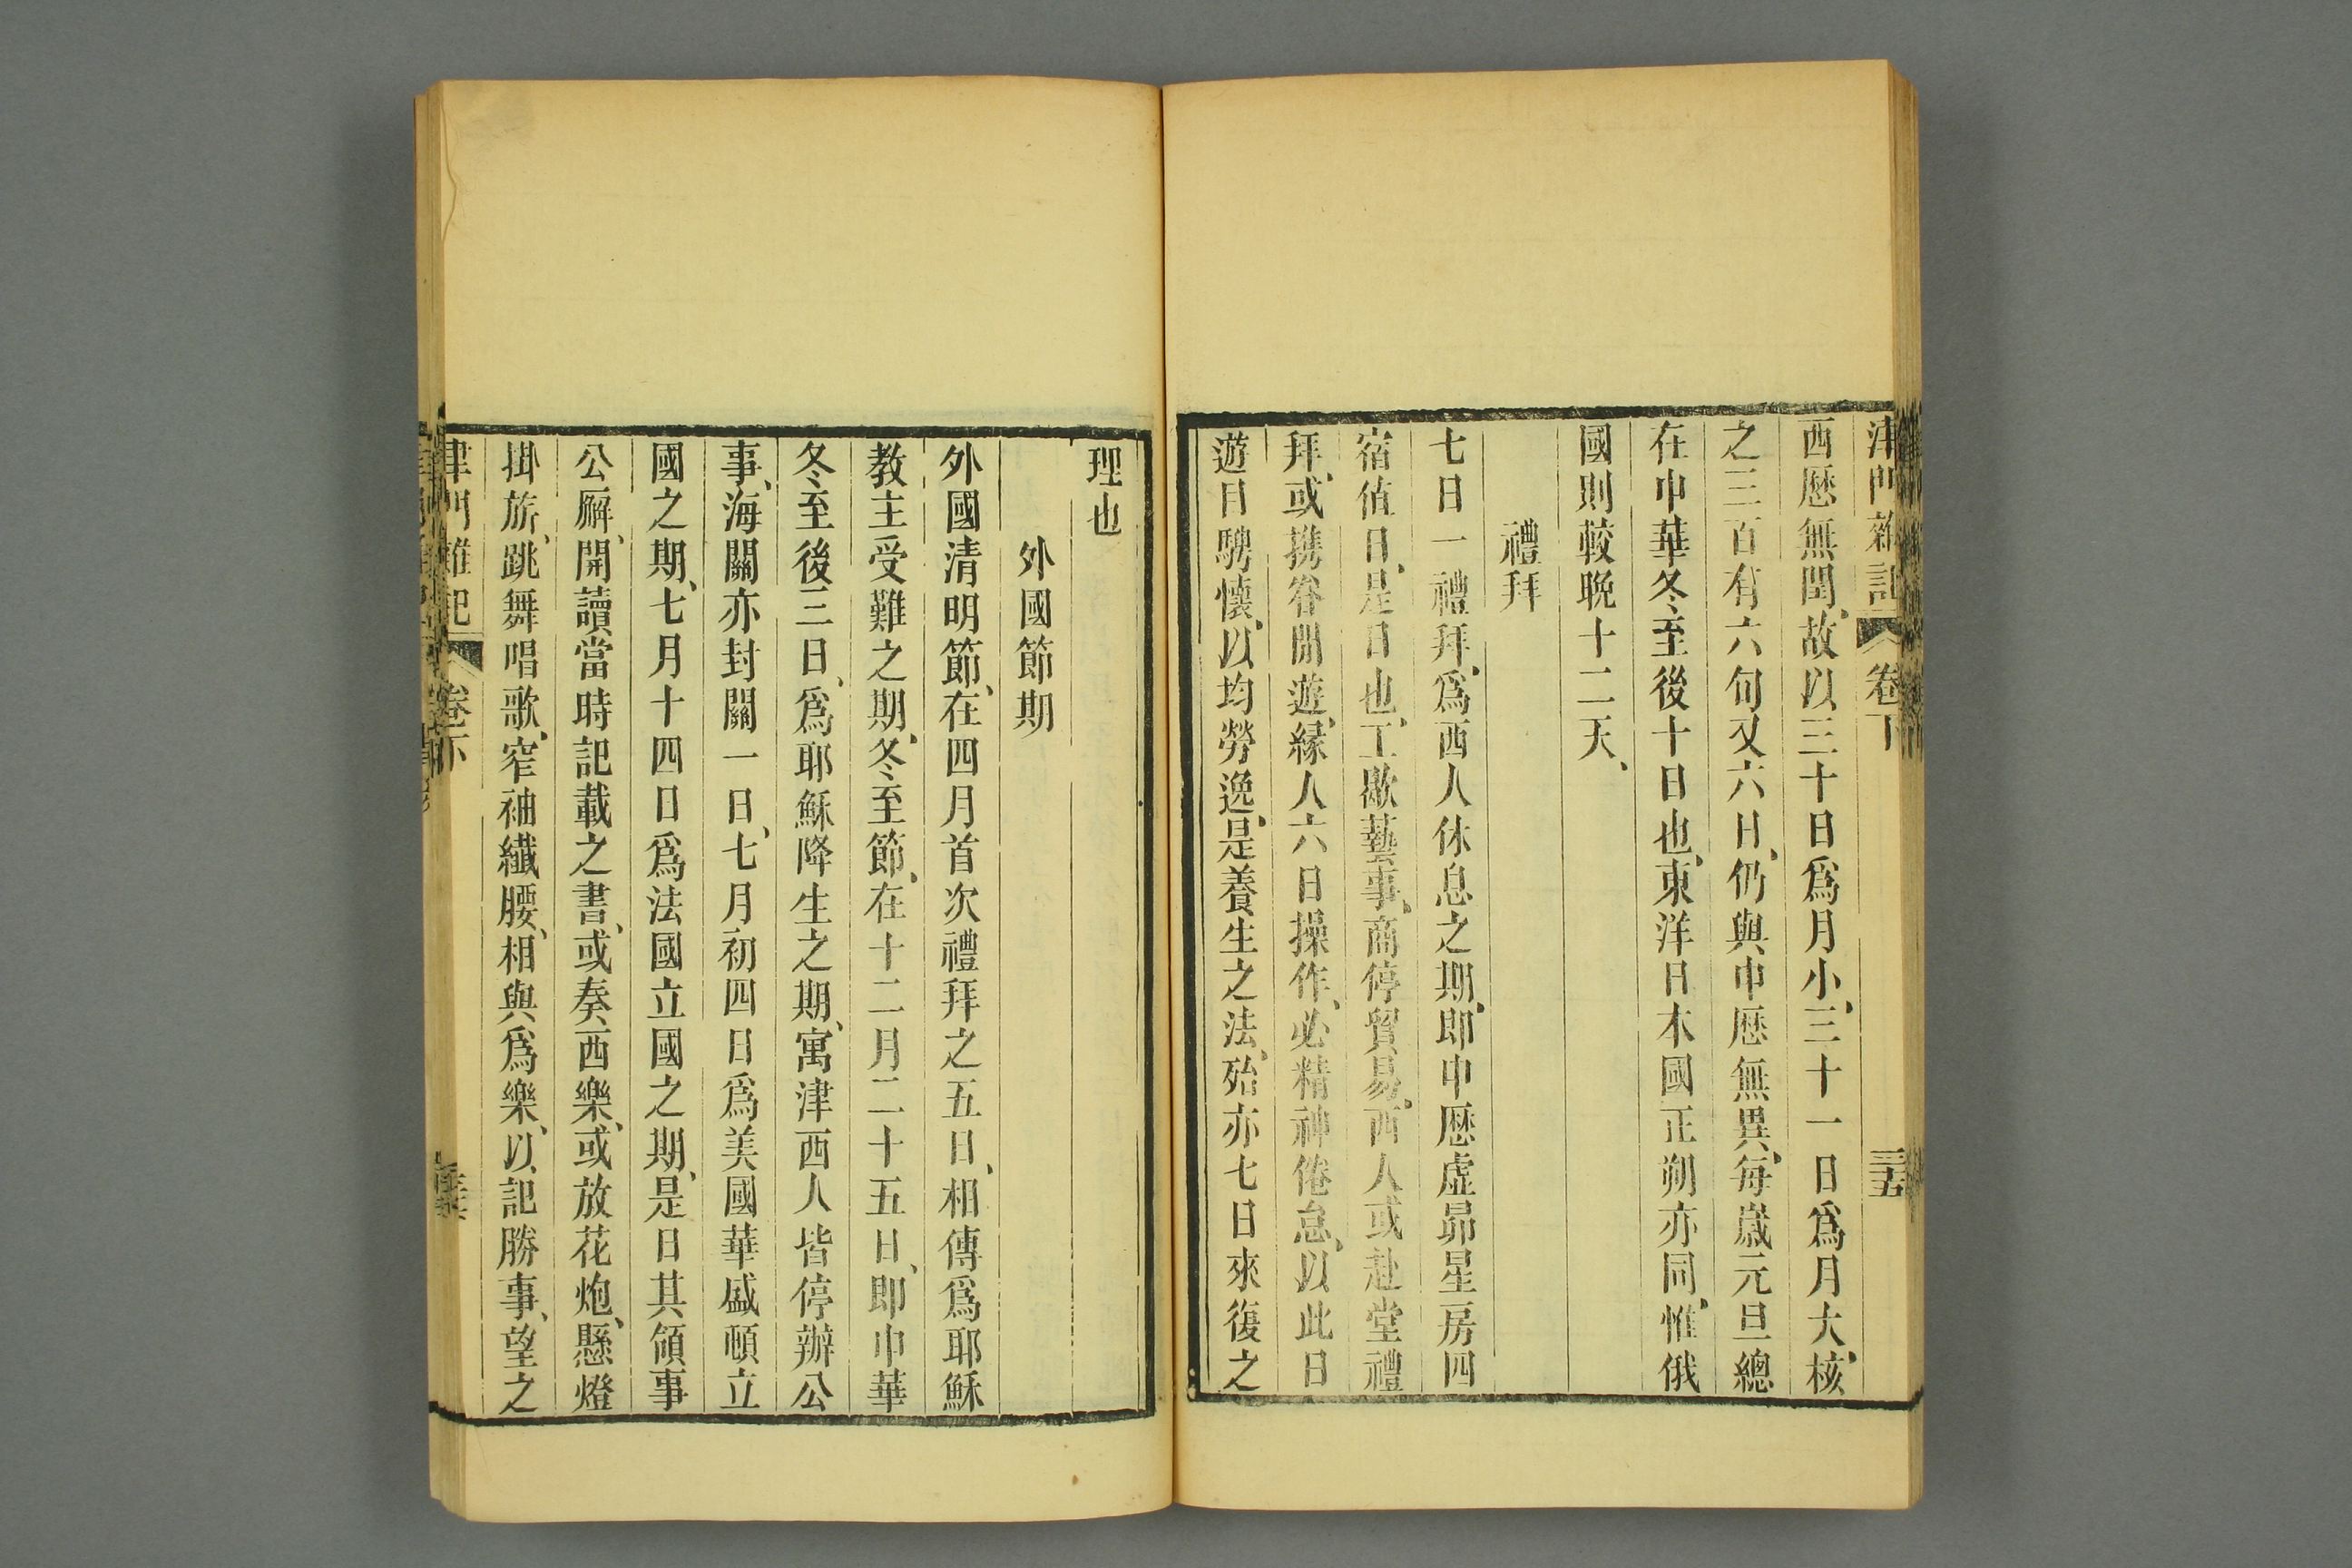 津門雜記 卷下 三五
西厯無閏、故以三十日爲月小、三十一日爲月大、核
之三百有六旬又六日、仍與中厯無異、每歲元旦總
在中華冬至後十日也、東洋日本國正朔亦同、惟俄
國則較晚十二天、
禮拜
七日一禮拜、爲西人休息之期、即中厯虛昴星房四
宿值日、是日也、工歇藝事、商停貿易、西人或赴堂禮
拜、或攜眷閒遊、緣人六日操作、必精神倦怠、以此日
遊目騁懷、以均勞逸、是養生之法、殆亦七日來復之
理也
外國節期
外國清明節、在四月首次禮拜之五日、相傳爲耶穌
教主受難之期、冬至節、在十二月二十五日、即中華
冬至後三日、爲耶穌降生之期、寓津西人皆停辦公
事、海關亦封關一日、七月初四日爲美國華盛頓立
國之期、七月十四日爲法國立國之期、是日其領事
公廨、開讀當時記載之書、或奏西樂、或放花炮、懸燈
掛旂、跳舞唱歌、窄袖纖腰、相與爲樂、以記勝事、望之
津門雜記 卷下